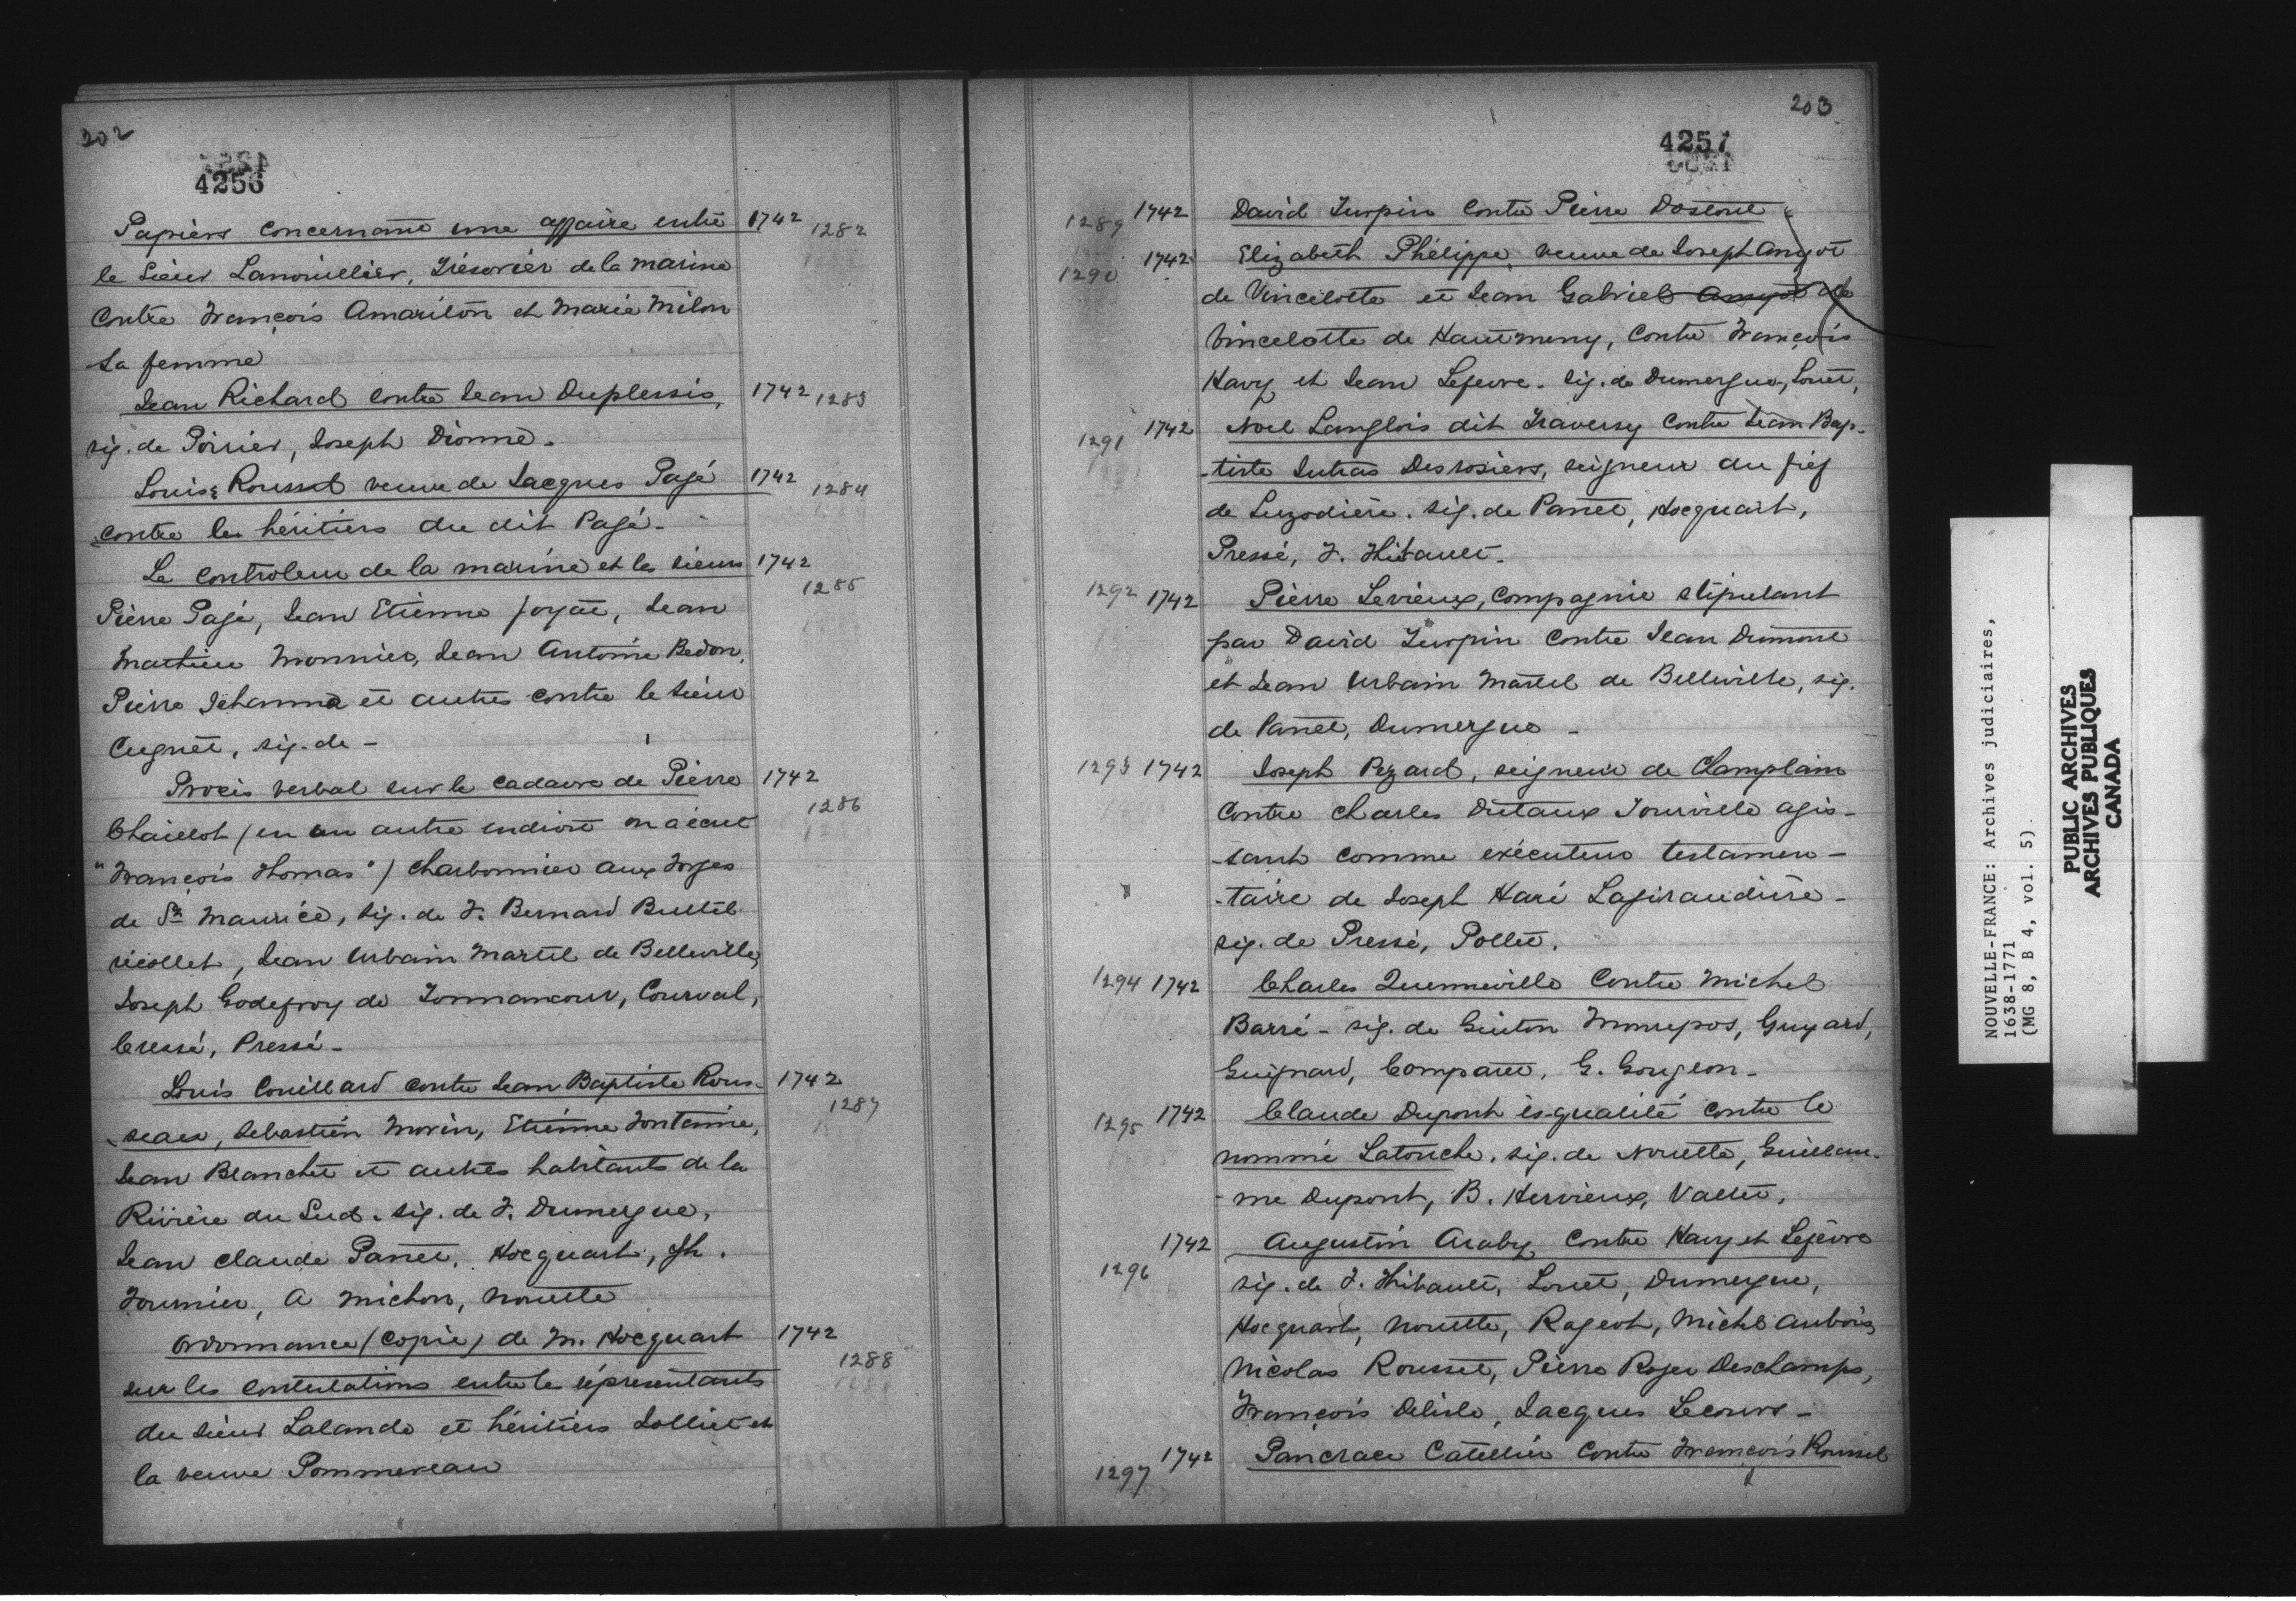 202
4256
Papiers concernant une affaire entre 1742 1282
le Sieur Lanouillier, Trésorier de la marine
Contre François Amariton et Marie Milon
sa femme
Jean Richard contre Jean Duplessis, 1742 1283
sig. de Poirier, Joseph Dionne.
Louise Roussel veuve de Jacques Pagé 1742 1284
contre les héritiers du dit Pagé.
Le Controleur de la marine et les sieurs 1742 1285
Pierre Pagé, Jean Etienne Jayat, Jean
Mathieu Monnier, Jean Antoine Bedon,
Pierre Jehanna et autres contre le Sieur
Cugnet, sig. de -
Procès verbal sur le cadavre de Pierre 1742 1286
Chaillot (en un autre endroit on a écrit
"François Thomas") charbonnier aux Forges
de St Maurice, sig. de F. Bernard Bulté
récollet, Jean Urbain Martel de Belleville,
Joseph Godefroy de Tonnancour, Courval,
Cressé, Pressé -
Louis Couillard contre Jean Baptiste Rous- 1742 1287
seau, Sebastien Morin, Etienne Fontaine,
Jean Blanchet et autres habitants de la
Rivière du Sud. sig. de F. Dumergue,
Jean Claude Panet, Hocquart, Jh.
Fournier, A Michon, Nouette
Ordonnance (copie) de M. Hocquart 1742 1288
sur les contestations entre les représentants
du sieur Lalande et héritiers Jolliet et
la veuve Pommereau
203
4257
1289 1742 David Turpin contre Pierre Dostout
1290 1742 Elizabeth Phélippe, veuve de Joseph Amyot
de Vincelotte et Jean Gabriel Amyot de
Vincelotte de Hautmeny, contre François
Havy et Jean Lefevre. sig. de Dumergue, Louet,
1291 1742 Noel Langlois dit Traversy contre Jean Bap-
-tiste Jutras Desrosiers, seigneur du fief
de Luzodière. sig. de Panet, Hocquart,
Pressé, F. Thibault.
1292 1742 Pierre Levieux, Compagnie stipulant
par David Turpin contre Jean Dumont
et Jean Urbain Martel de Belleville, sig.
de Panet, Dumergue -
1293 1742 Joseph Pezard, seigneur de Champlain
contre Charles Dutaux Tourville agis-
-sant comme exécuteur testamen-
-taire de Joseph Haré Lagiraudière -
sig. de Pressé, Pollet.
1294 1742 Charles Quenneville contre Michel
Barré - sig. de Guiton Monrepos, Guyard,
Guignard, Comparet, G. Gougeon -
1295 1742 Claude Dupont ès-qualité contre le
nommé Latouche. sig. de Nouette, Guillau-
-me Dupont, B. Hervieux, Vallet,
1296 1742 Augustin Araby, contre Havy et Lefèvre
sig. de F. Thibault, Louet, Dumergue,
Hocquart, Nouette, Rageot, Michel Aubois,
Nicolas Rousset, Pierre Roger Deschamps,
François Delisle, Jacques Lecours -
1297 1742 Pancrace Catellier contre François Roussel
NOUVELLE-FRANCE: Archives judiciaires,
1638-1771
(MG 8, B 4, vol. 5).
PUBLIC ARCHIVES
ARCHIVES PUBLIQUES
CANADA